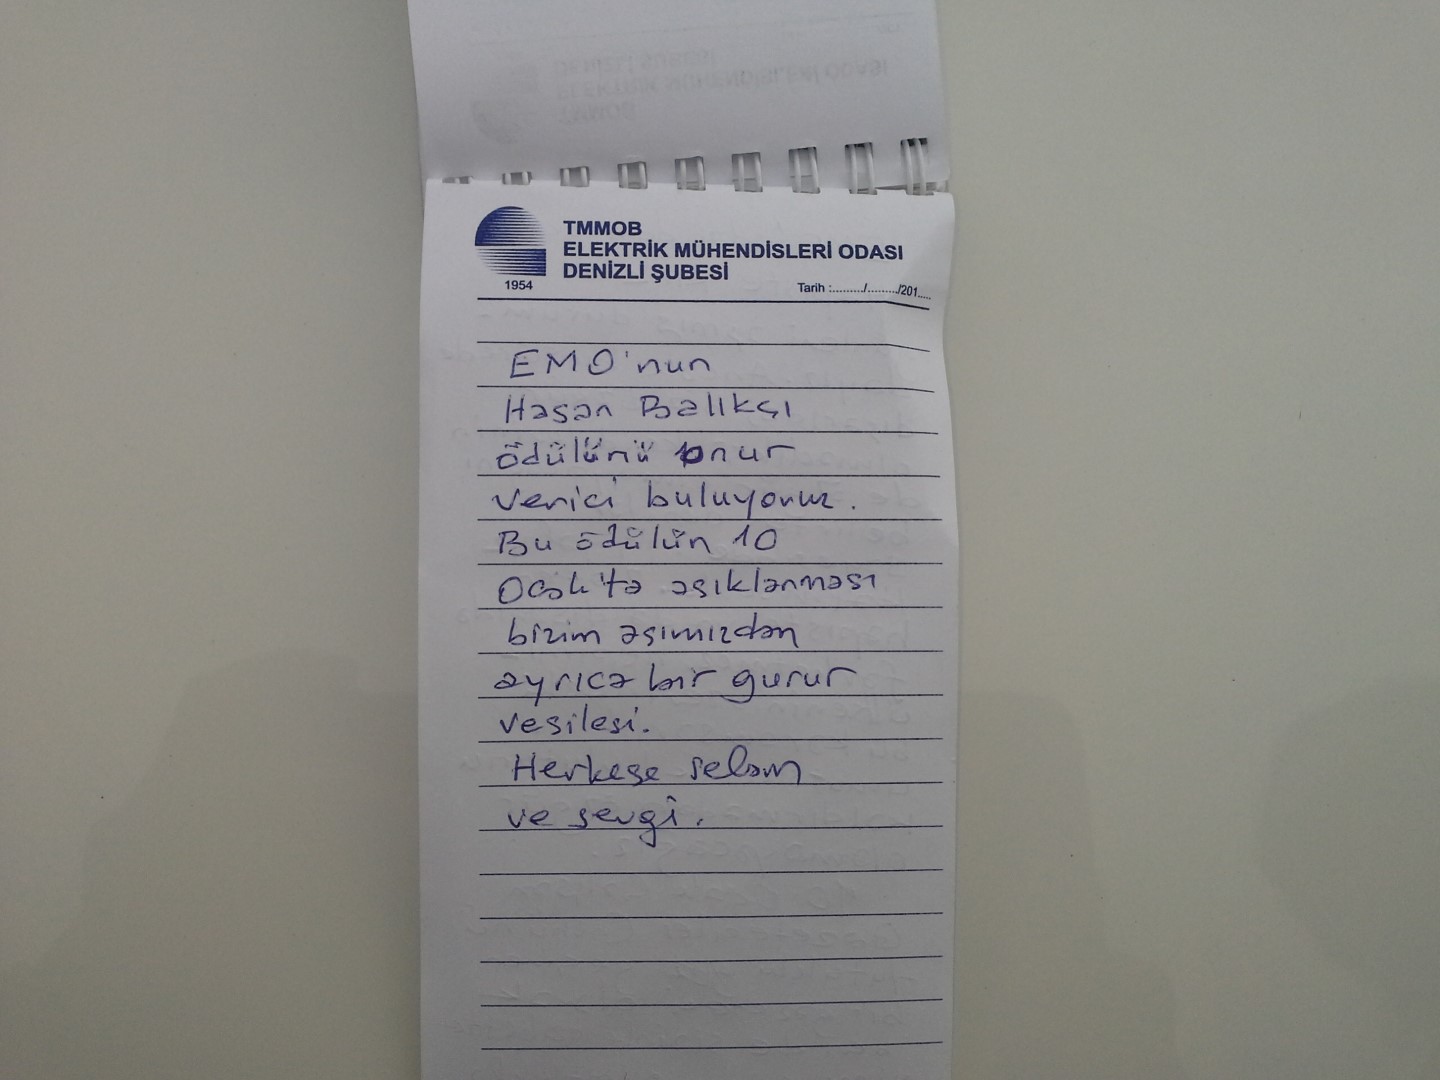 TMMOB
ELEKTRİK MÜHENDİSLERİ ODASI
DENİZLİ ŞUBESİ
1954
Tarih :........./........./201.....
EMO'nun
Hasan Balıkçı
ödülünü onur
verici buluyoruz.
Bu ödülün 10
Ocak'ta açıklanması
bizim açımızdan
ayrıca bir gurur
vesilesi.
Herkese selam
ve sevgi.